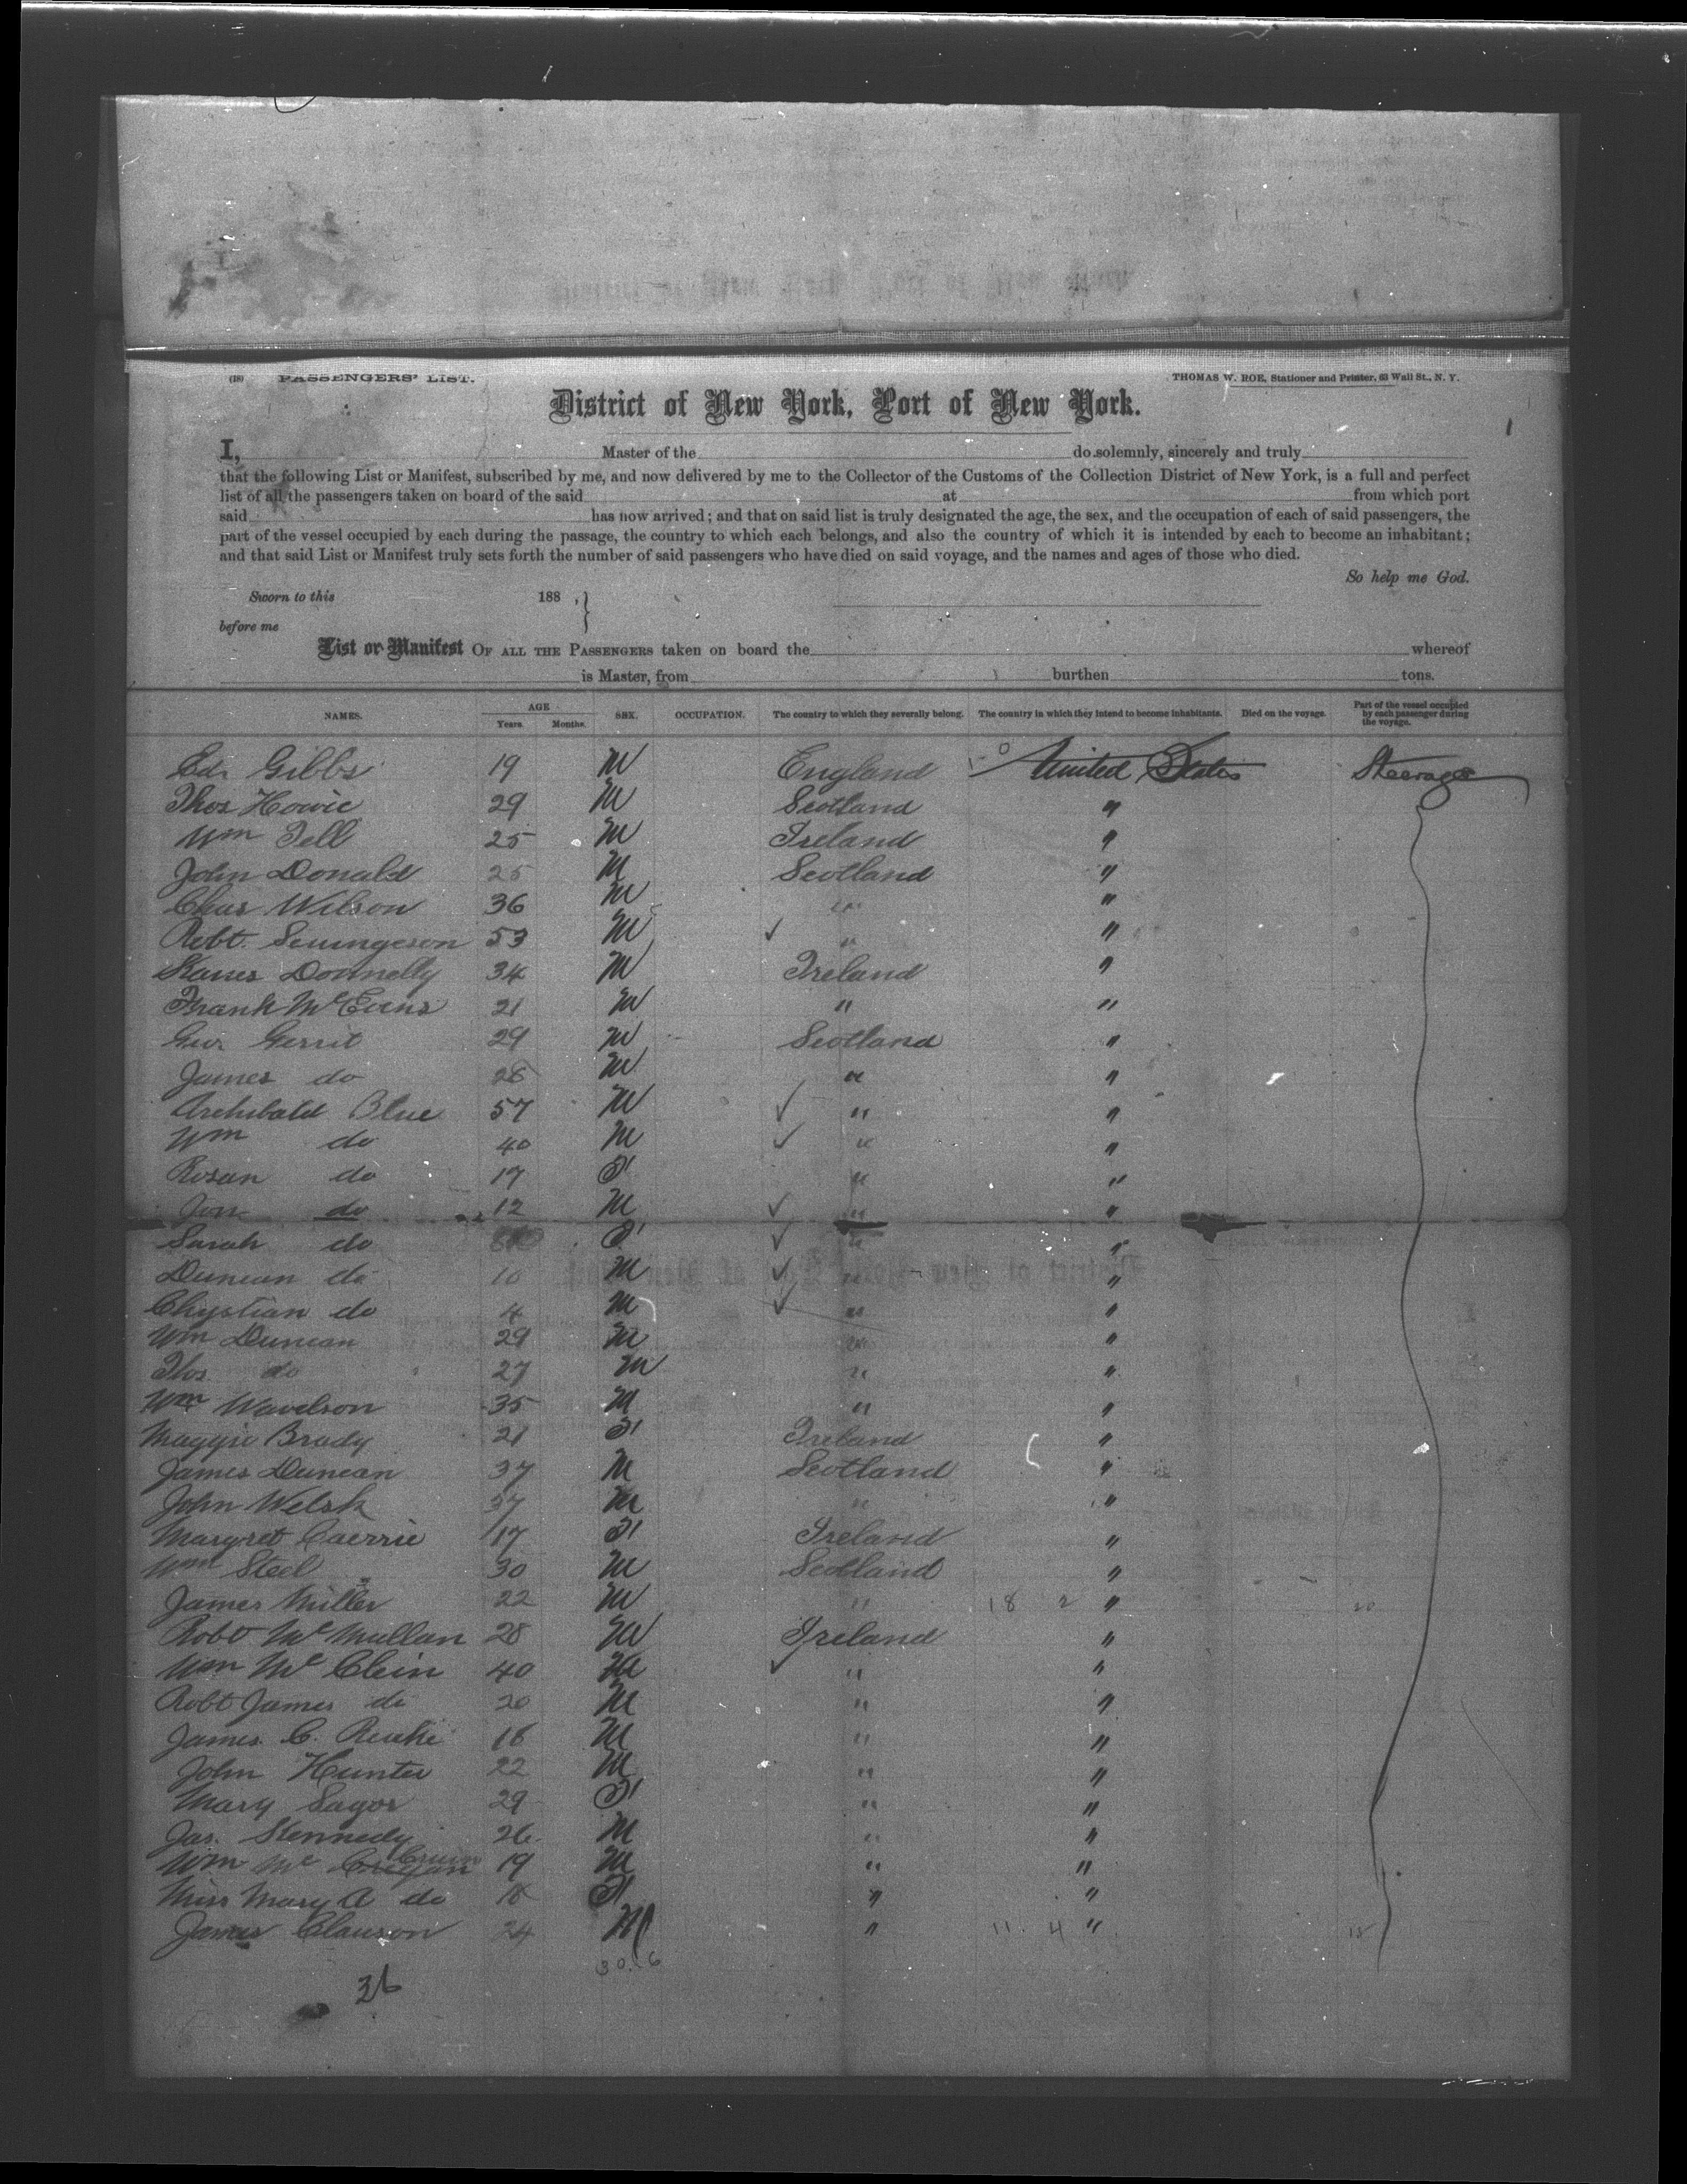 (18) PASSENGERS' LIST.
THOMAS W. ROE, Stationer and Printer, 63 Wall St., N. Y.
District of New York, Port of New York.
1
I, Master of the do solemnly, sincerely and truly
that the following List or Manifest, subscribed by me, and now delivered by me to the Collector of the Customs of the Collection District of New York, is a full and perfect
list of all the passengers taken on board of the said at from which port
said has now arrived; and that on said list is truly designated the age, the sex, and the occupation of each of said passengers, the
part of the vessel occupied by each during the passage, the country to which each belongs, and also the country of which it is intended by each to become an inhabitant;
and that said List or Manifest truly sets forth the number of said passengers who have died on said voyage, and the names and ages of those who died.
So help me God.
Sworn to this 188 , }
before me
List or Manifest OF ALL THE PASSENGERS taken on board the whereof
is Master, from burthen tons.
NAMES. AGE Years. Months. SEX. OCCUPATION. The country to which they severally belong. The country in which they intend to become inhabitants. Died on the voyage. Part of the vessel occupied by each passenger during the voyage.
Ed. Gibbs 19 M England United States Steerage
Thos Howie 29 M Scotland "
Wm Tell 25 M Ireland "
John Donald 25 M Scotland "
Chas Wilson 36 M " "
Robt. 53 M ✓ " "
James Donnelly 34 M Ireland "
Frank McEvins 21 M " "
Geo. Gerrit 29 M Scotland "
James do 28 M " "
Archibald Blue 57 M ✓ " "
Wm do 40 M ✓ " "
Rosan do 17 F " "
Jon do 12 M ✓ " "
Sarah do F ✓ " "
Duncan do 10 M ✓ " "
Chystian do 4 M ✓ " "
Wm Duncan 29 M " "
Thos do 27 M " "
Wm Wavelson 35 M " "
Maggie Brady 21 F Ireland "
James Duncan 37 M Scotland "
John Welsh 37 M " "
Margret 17 F Ireland "
Wm Steel 30 M Scotland "
James Miller 22 M " 18 2 " 20
Robt McMullan 28 M Ireland "
Wm McClein 40 M ✓ " "
Robt James do 20 M " "
James C. 18 M " "
John Hunter 22 M " "
Mary Sagor 29 F " "
Jas. Kennedy 26 M " "
Wm Mc 19 M " "
Miss Mary A do 18 F " "
James Clauson 24 M " 11 4 " 15
30. 6
36